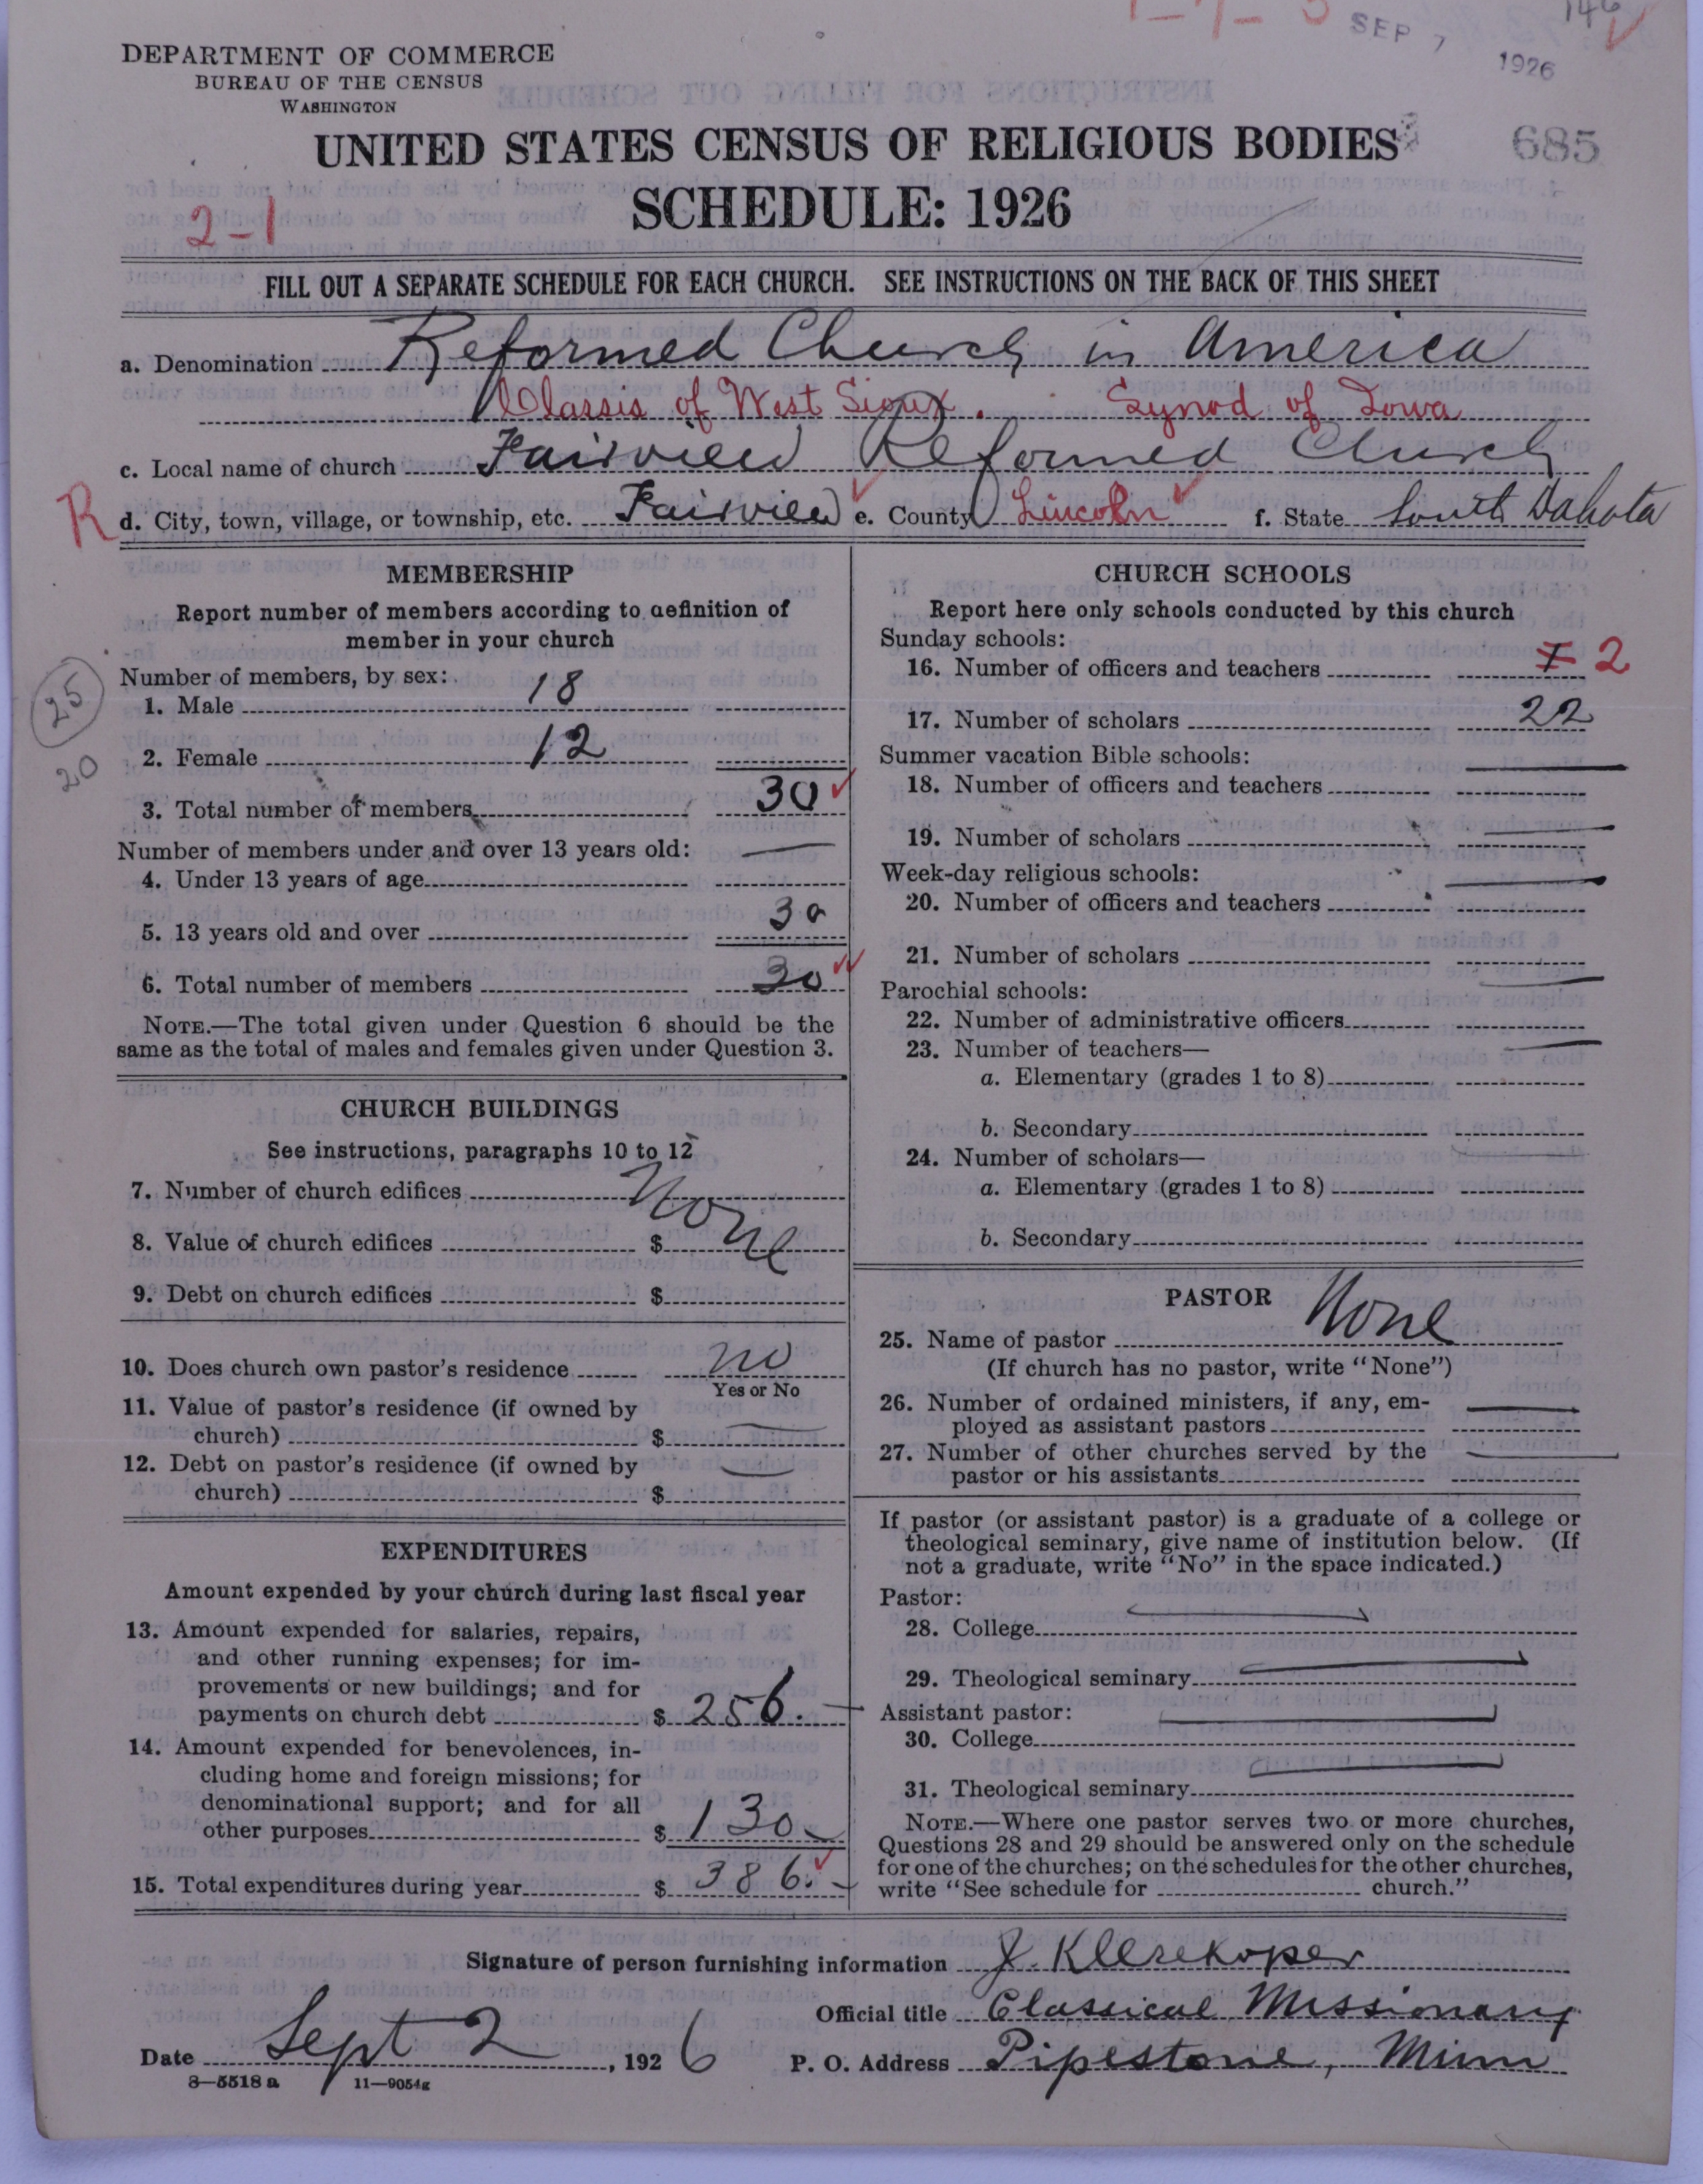 146
SEP 7 1926
DEPARTMENT OF COMMERCE
BUREAU OF THE CENSUS
WASHINGTON
UNITED STATES CENSUS OF RELIGIOUS BODIES
685
SCHEDULE: 1926
2-1
FILL OUT A SEPARATE SCHEDULE FOR EACH CHURCH. SEE INSTRUCTIONS ON THE BACK OF THIS SHEET
a. Denomination Reformed Church in America
Classis of West Sioux. Synod of Iowa
c. Local name of church Fairview Reformed Church
R d. City, town, village, or township, etc. Fairview e. County Lincoln f. State South Dakota
MEMBERSHIP
Report number of members according to definition of
member in your church
Number of members, by sex:
25
1. Male 18
20
2. Female 12
3. Total number of members 30
Number of members under and over 13 years old:
4. Under 13 years of age —
5. 13 years old and over 30
6. Total number of members 30
NOTE.—The total given under Question 6 should be the
same as the total of males and females given under Question 3.
CHURCH BUILDINGS
See instructions, paragraphs 10 to 12
7. Number of church edifices None
8. Value of church edifices $
9. Debt on church edifices $
10. Does church own pastor's residence no
Yes or No
11. Value of pastor's residence (if owned by
church) $ —
12. Debt on pastor's residence (if owned by
church) $ —
EXPENDITURES
Amount expended by your church during last fiscal year
13. Amount expended for salaries, repairs,
and other running expenses; for im-
provements or new buildings; and for
payments on church debt $ 256. —
14. Amount expended for benevolences, in-
cluding home and foreign missions; for
denominational support; and for all
other purposes $ 130 —
15. Total expenditures during year $ 386. —
CHURCH SCHOOLS
Report here only schools conducted by this church
Sunday schools:
16. Number of officers and teachers 2
17. Number of scholars 22
Summer vacation Bible schools:
18. Number of officers and teachers —
19. Number of scholars —
Week-day religious schools:
20. Number of officers and teachers —
21. Number of scholars
Parochial schools:
22. Number of administrative officers —
23. Number of teachers—
a. Elementary (grades 1 to 8) —
b. Secondary
24. Number of scholars—
a. Elementary (grades 1 to 8)
b. Secondary
PASTOR
25. Name of pastor None
(If church has no pastor, write "None")
26. Number of ordained ministers, if any, em-
ployed as assistant pastors —
27. Number of other churches served by the
pastor or his assistants —
If pastor (or assistant pastor) is a graduate of a college or
theological seminary, give name of institution below. (If
not a graduate, write "No" in the space indicated.)
Pastor:
28. College —
29. Theological seminary —
Assistant pastor:
30. College —
31. Theological seminary —
NOTE.—Where one pastor serves two or more churches,
Questions 28 and 29 should be answered only on the schedule
for one of the churches; on the schedules for the other churches,
write "See schedule for church."
Signature of person furnishing information J. Klerekoper
Official title Classical Missionary
Date Sept 2, 1926 P. O. Address Pipestone, Minn
8—5518 a 11—9054g